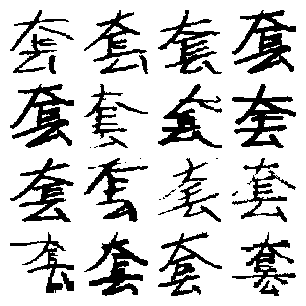 套套套套
套套套套
套套套套
套套套套